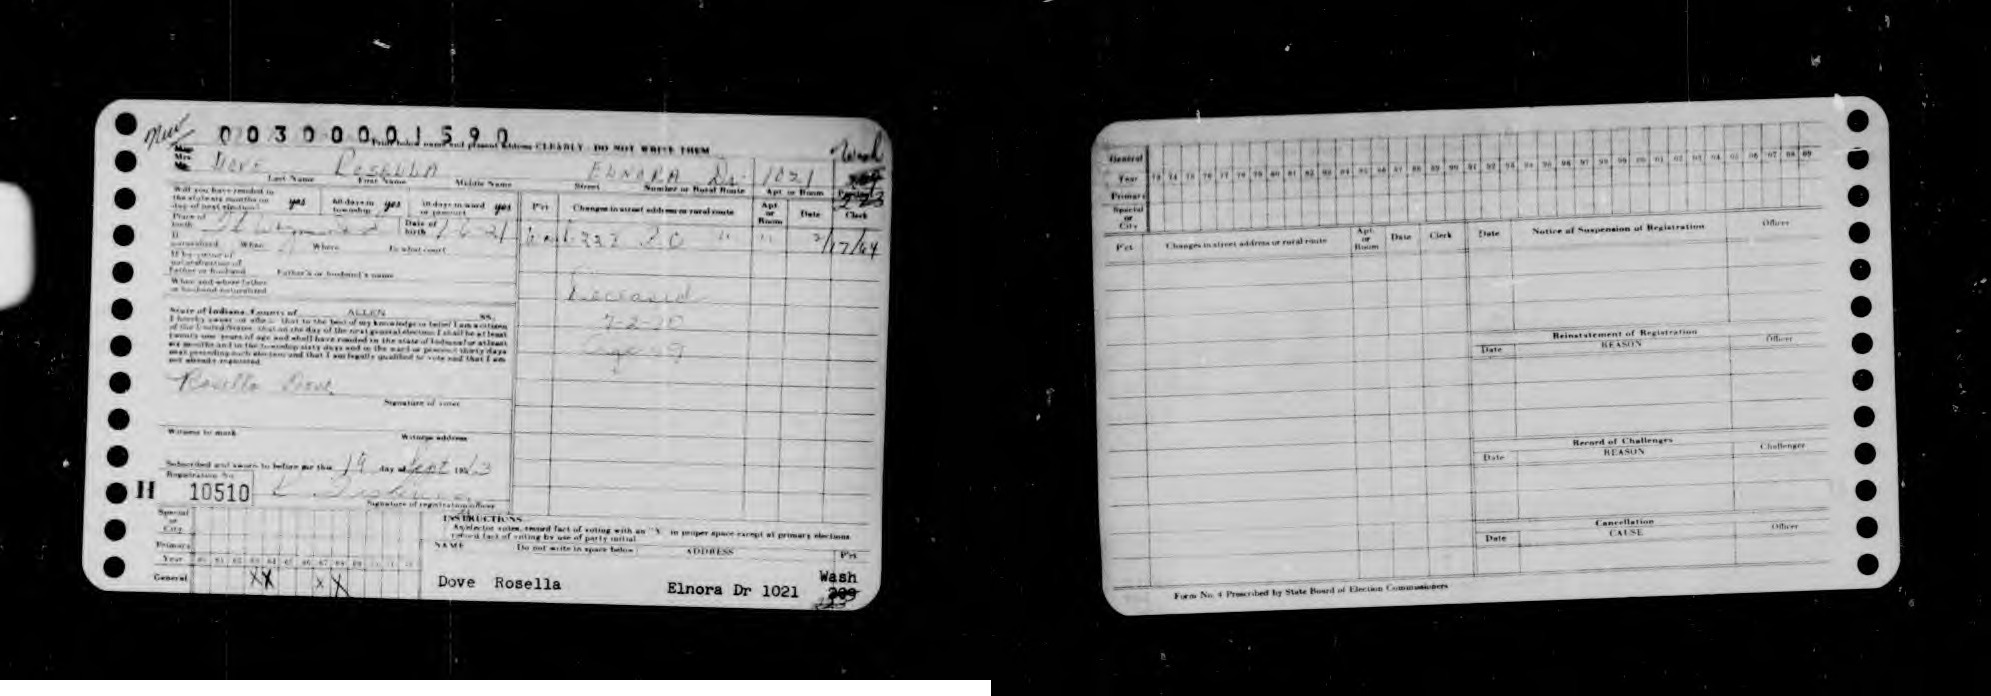 New 0030000001590
Print below name and present address CLEARLY - DO NOT WRITE THEM
Wash
Mrs. DOVE ROSELLA ELNORA Dr. 1021
Last Name First Name Middle Name Street Number or Rural Route Apt. or Room Precinct
Will you have resided in the state six months on day of next election? yes 60 days in township yes 30 days in ward or precinct yes
Pct. Changes in street address or rural route Apt. or Room Date Clerk
Place of birth Date of birth
227 " " 2/17/64
If naturalized When Where In what court
If by virtue of naturalization of Father or husband Father's or husband's name
When and where father or husband naturalized
Deceased
State of Indiana, County of ALLEN SS.
I hereby swear or affirm that to the best of my knowledge or belief I am a citizen
of the United States, that on the day of the next general election I shall be at least
twenty-one years of age and shall have resided in the state of Indiana for at least
six months and in the township sixty days and in the ward or precinct thirty days
next preceding such election and that I am legally qualified to vote and that I am
not already registered.
7-2-70
age
Rosella Dove
Signature of voter
Witness to mark Witness address
Subscribed and sworn to before me this 19 day of Sept 1963
Registration No.
H 10510
Signature of registration officer
INSTRUCTIONS
As elector votes, record fact of voting with an "X" in proper space except at primary elections
record fact of voting by use of party initial
Special or City
Primary
Year 60 61 62 63 64 65 66 67 68 69 70 71 72
General X X X X
NAME Do not write in space below ADDRESS Pct
Dove Rosella Elnora Dr 1021 Wash
209
General
Year 73 74 75 76 77 78 79 80 81 82 83 84 85 86 87 88 89 90 91 92 93 94 95 96 97 98 99 00 01 02 03 04 05 06 07 08 09
Primary
Special or City
Pct. Changes in street address or rural route Apt. or Room Date Clerk Date Notice of Suspension of Registration Officer
Reinstatement of Registration
Date REASON Officer
Record of Challenges
Date REASON Challenger
Cancellation
Date CAUSE Officer
Form No. 4 Prescribed by State Board of Election Commissioners